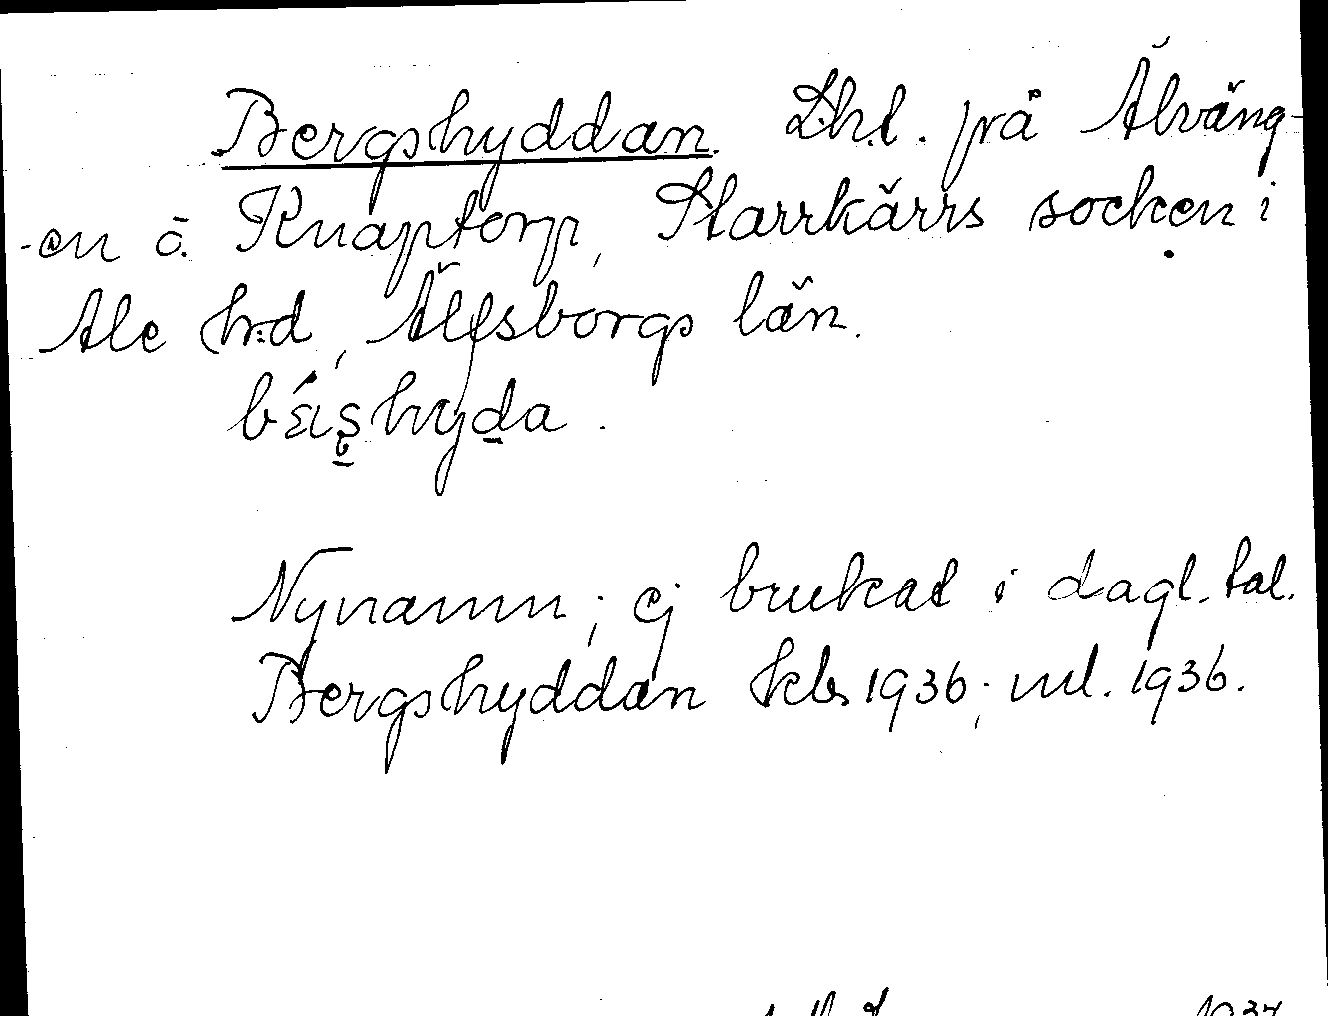 Bergshyddan. Lht. på Älväng-
-en å Knaptorp, Starrkärrs socken i
Ale hrd, Älfsborgs län.
Nynamn; ej brukat i dagl. tal.
Bergshyddan kb 1936; ml. 1936.
1937